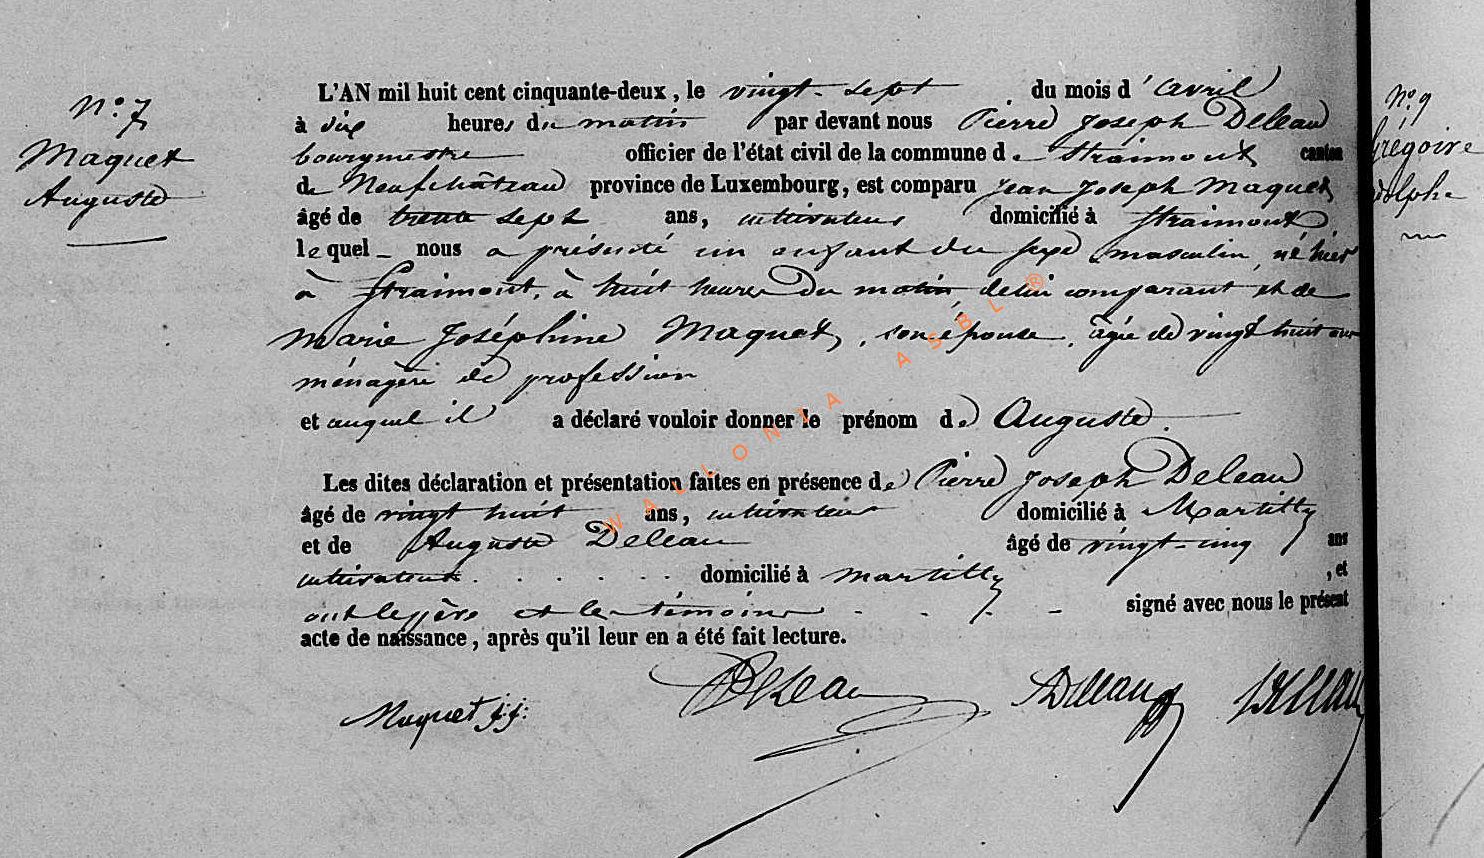 N.º 7
Maquet
Auguste
L'AN mil huit cent cinquante-deux, le vingt-sept du mois d'avril
à six heures du matin par devant nous Pierre Joseph Deleau
bourgmestre officier de l'état civil de la commune de Straimont canton
de Neufchâteau province de Luxembourg, est comparu Jean Joseph Maquet
âgé de trente sept ans, cultivateur domicilié à Straimont
lequel nous a présenté un enfant du sexe masculin, né hier
à Straimont, à huit heures du matin, de lui comparant et de
Marie Joséphine Maquet, son épouse, âgée de vingt huit ans
ménagère de profession
et auquel il a déclaré vouloir donner le prénom de Auguste.
Les dites déclaration et présentation faites en présence de Pierre Joseph Deleau
âgé de vingt huit ans, cultivateur domicilié à Martilly
et de Auguste Deleau âgé de vingt-cinq ans
cultivateur domicilié à Martilly, et
ont le père et les témoins signé avec nous le présent
acte de naissance, après qu'il leur en a été fait lecture.
Maquet j.j. Deleau ADeleau Deleau
N.º 9
Grégoire
Adolphe
WALLONIA ASBL ®